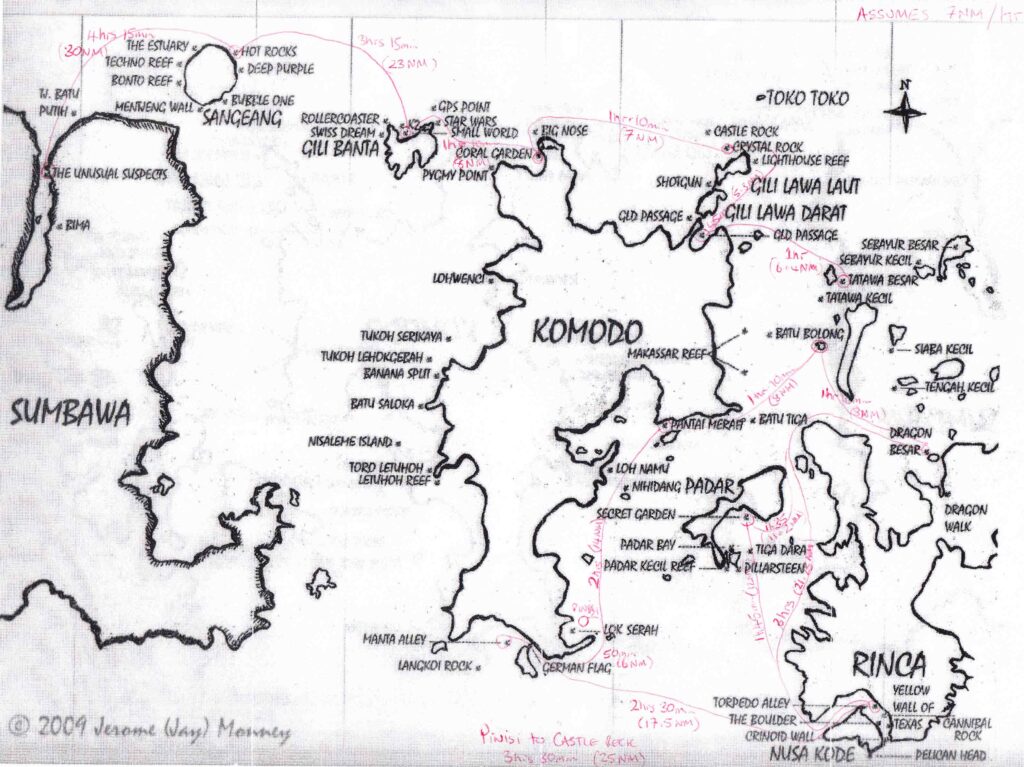 ASSUMES 7NM/HR
4hrs 15min
(30NM)
THE ESTUARY
HOT ROCKS
TECHNO REEF
DEEP PURPLE
BONTO REEF
W. BATU
PUTIH
MENWENG WALL
BUBBLE ONE
SANGEANG
3hrs 15min
(23NM)
GPS POINT
ROLLERCOASTER
STAR WARS
SWISS DREAM
SMALL WORLD
GILI BANTA
K2
BIG NOSE
CORAL GARDEN
PYGMY POINT
1hr 10min
7NM
TOKO TOKO
N
CASTLE ROCK
CRYSTAL ROCK
LIGHTHOUSE REEF
SHOTGUN
GILI LAWA LAUT
GILI LAWA DARAT
GLD PASSAGE
GLD PASSAGE
THE UNUSUAL SUSPECTS
BIMA
SEBAYUR BESAR
SEBAYUR KECIL
1hr
(6.4NM)
TATAWA BESAR
TATAWA KECIL
LOHWENCI
KOMODO
TUKOH SERIKAYA
TUKOH LEHOKGEBAH
BANANA SPLIT
MAKASSAR REEF
BATU BOLONG
SIABA KECIL
TENGAH KECIL
1hr 10min
(8NM)
SUMBAWA
BATU SALOKA
PANTAI MERAH
BATU TIGA
DRAGON
BESAR
NISALEME ISLAND
TORO LETUHOH
LETUHOH REEF
LOH NAMU
NIHIDANG
PADAR
SECRET GARDEN
PADAR BAY
TIGA DARA
PADAR KECIL REEF
PILLARSTEEN
DRAGON
WALK
2hrs (14NM)
3hrs
PINISI
LOK SERAH
MANTA ALLEY
LANGKOI ROCK
GERMAN FLAG
50min
(6NM)
RINCA
2hrs 30min
(17.5NM)
TORPEDO ALLEY
THE BOULDER
CRINOID WALL
NUSA KODE
YELLOW
WALL OF
TEXAS
CANNIBAL
ROCK
PELICAN HEAD
© 2009 Jerome (Jay) Monney
PINISI TO CASTLE ROCK
3hrs 30min (25NM)